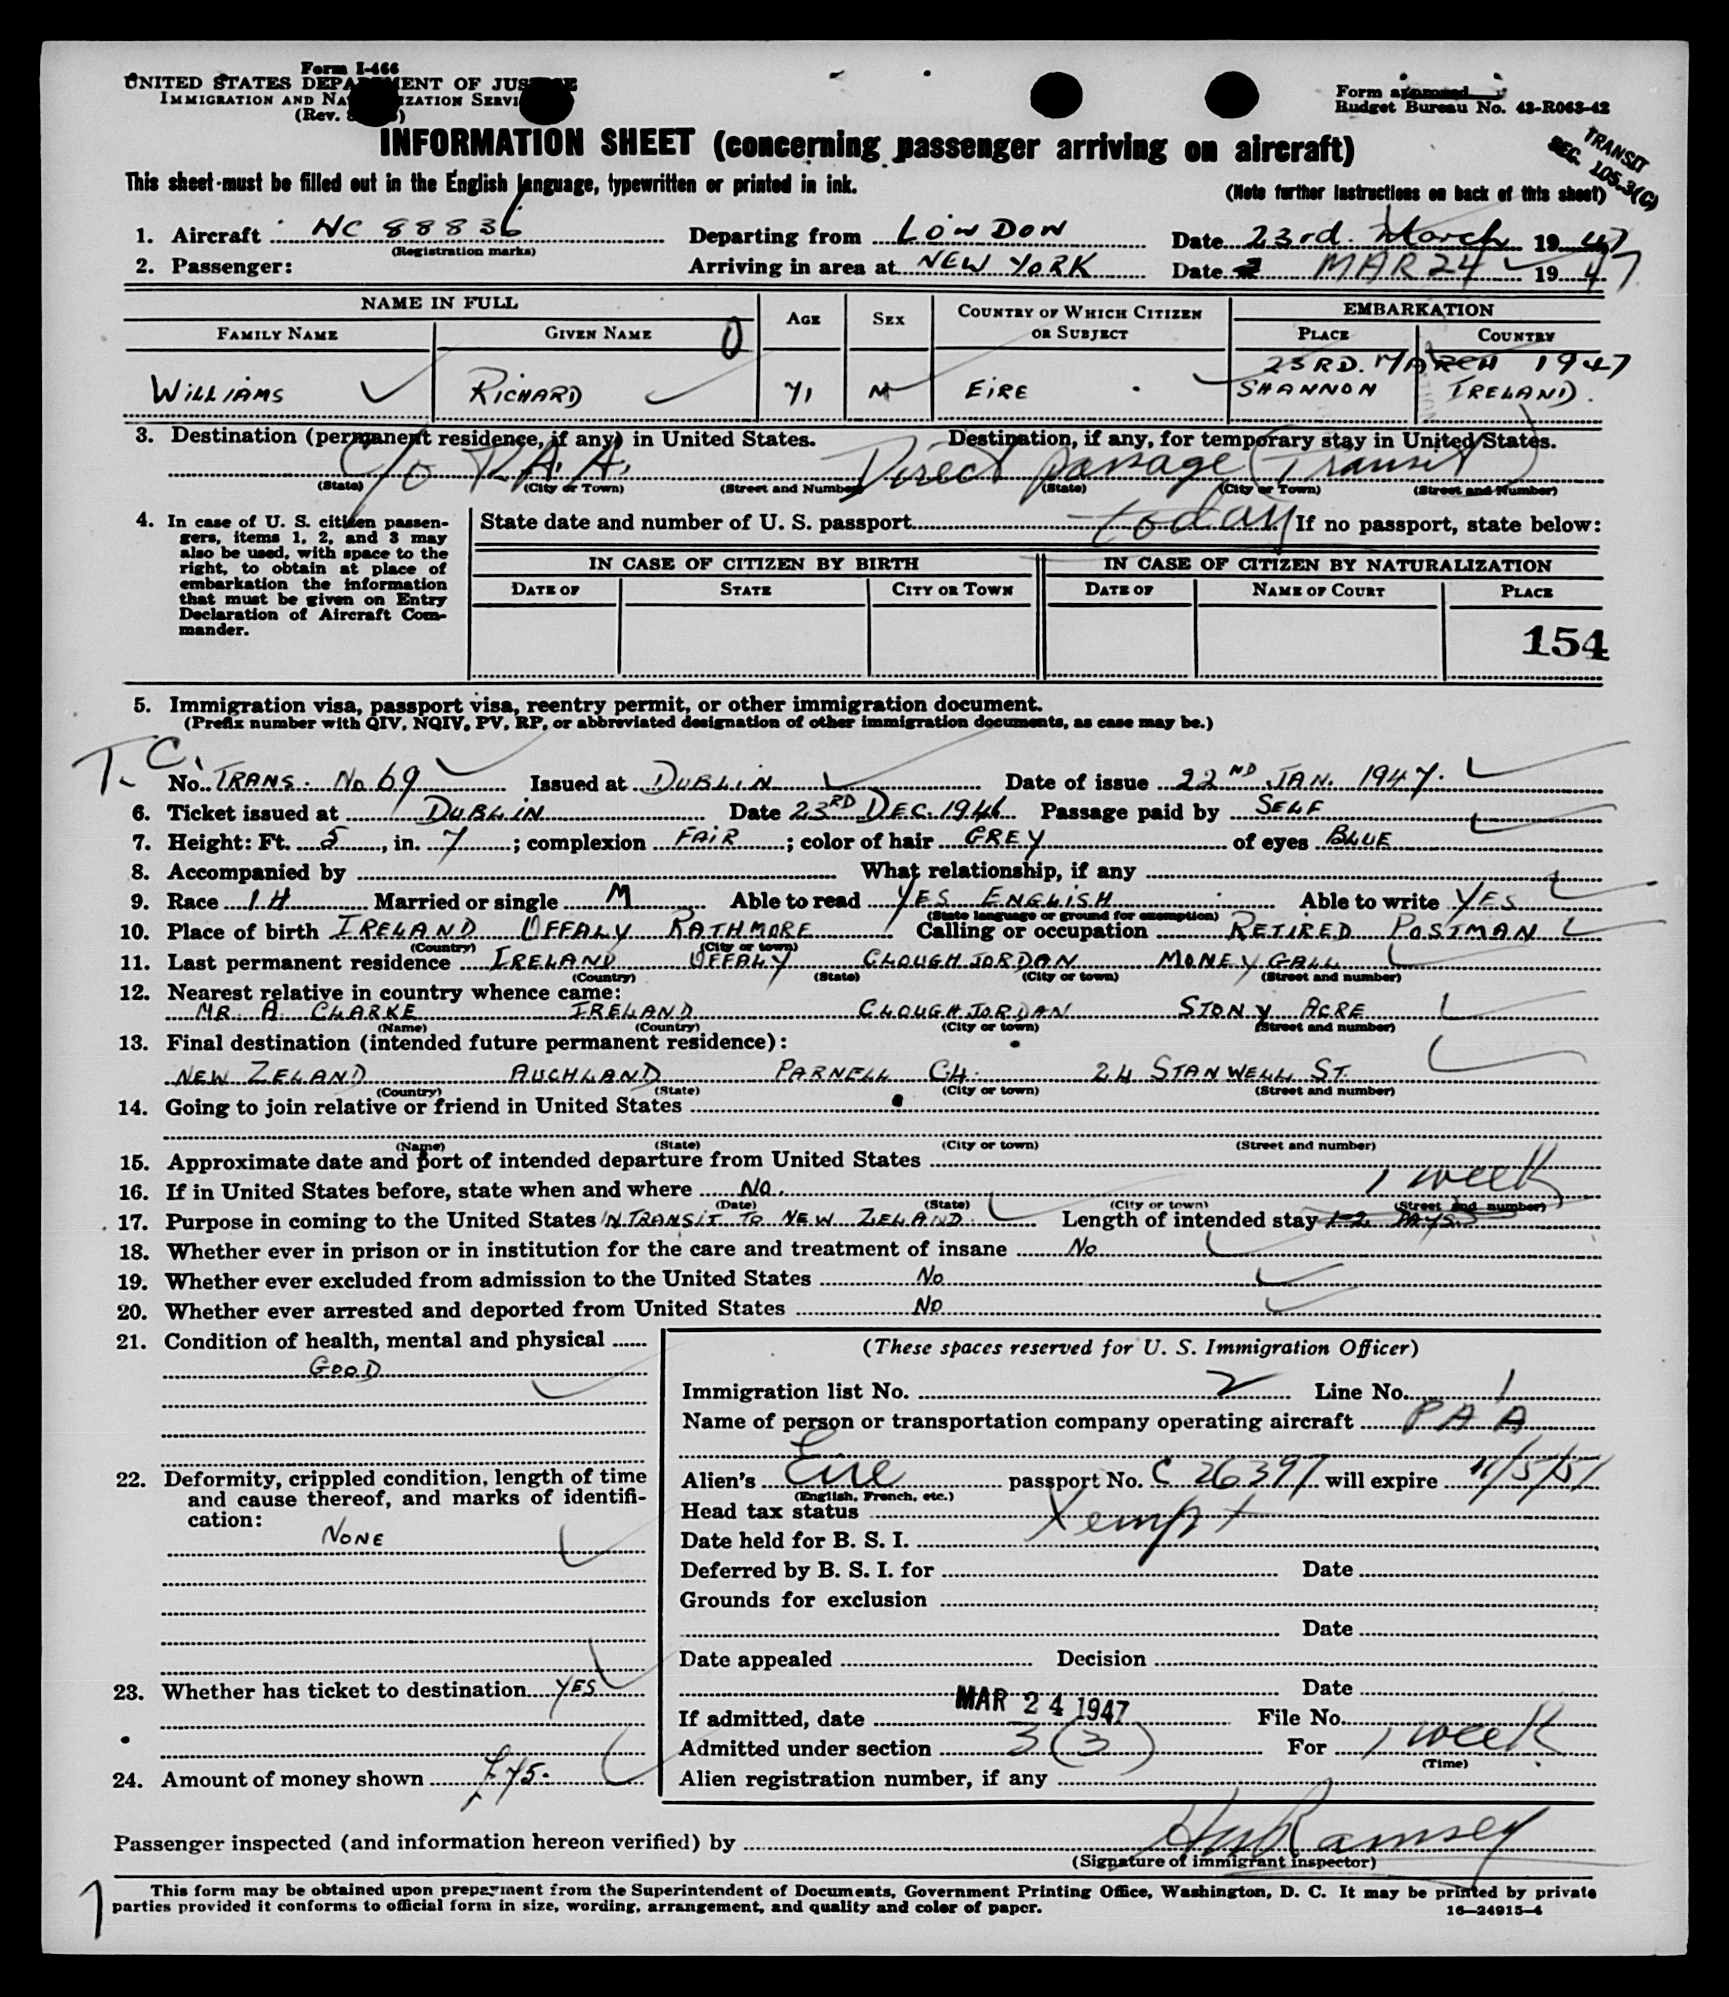 Form I-466
UNITED STATES DEPARTMENT OF JUSTICE
IMMIGRATION AND NATURALIZATION SERVICE
(Rev.
Form approved
Budget Bureau No. 43-R063-42
INFORMATION SHEET (concerning passenger arriving on aircraft)
TRANSIT
SEC. 105.3(C)
This sheet must be filled out in the English language, typewritten or printed in ink.
(Note further instructions on back of this sheet)
1. Aircraft NC 88836 Departing from LONDON Date 23rd. March 1947
(Registration marks)
2. Passenger: Arriving in area at NEW YORK Date MAR 24 1947
NAME IN FULL AGE SEX COUNTRY OF WHICH CITIZEN OR SUBJECT EMBARKATION
FAMILY NAME GIVEN NAME 0 PLACE COUNTRY
23RD. MARCH 1947
WILLIAMS RICHARD 71 M EIRE SHANNON IRELAND.
3. Destination (permanent residence, if any) in United States. Destination, if any, for temporary stay in United States.
C/o P.A.A. Direct passage (Transit)
(State) (City or Town) (Street and Number) (State) (City or Town) (Street and Number)
4. In case of U. S. citizen passengers, items 1, 2, and 3 may also be used, with space to the right, to obtain at place of embarkation the information that must be given on Entry Declaration of Aircraft Commander.
State date and number of U. S. passport today If no passport, state below:
IN CASE OF CITIZEN BY BIRTH IN CASE OF CITIZEN BY NATURALIZATION
DATE OF STATE CITY OR TOWN DATE OF NAME OF COURT PLACE
154
5. Immigration visa, passport visa, reentry permit, or other immigration document.
(Prefix number with QIV, NQIV, PV, RP, or abbreviated designation of other immigration documents, as case may be.)
T.C.
No. TRANS. No 69 Issued at DUBLIN Date of issue 22ND JAN. 1947.
6. Ticket issued at DUBLIN Date 23RD DEC. 1946 Passage paid by SELF
7. Height: Ft. 5, in. 7; complexion FAIR; color of hair GREY of eyes BLUE
8. Accompanied by What relationship, if any
9. Race IH Married or single M Able to read YES ENGLISH Able to write YES
(State language or ground for exemption)
10. Place of birth IRELAND OFFALY RATHMORE Calling or occupation RETIRED POSTMAN
(Country) (City or town)
11. Last permanent residence IRELAND OFFALY CLOUGHJORDAN MONEYGALL
(Country) (State) (City or town) (Street and number)
12. Nearest relative in country whence came:
MR. A. CLARKE IRELAND CLOUGHJORDAN STONY ACRE
(Name) (Country) (City or town) (Street and number)
13. Final destination (intended future permanent residence):
NEW ZELAND AUCHLAND PARNELL C4. 24 STANWELL ST.
(Country) (State) (City or town) (Street and number)
14. Going to join relative or friend in United States
(Name) (State) (City or town) (Street and number)
15. Approximate date and port of intended departure from United States
1 week
16. If in United States before, state when and where NO.
(Date) (State) (City or town) (Street and number)
17. Purpose in coming to the United States IN TRANSIT TO NEW ZELAND. Length of intended stay 1-2 DAYS
18. Whether ever in prison or in institution for the care and treatment of insane No
19. Whether ever excluded from admission to the United States No
20. Whether ever arrested and deported from United States NO
21. Condition of health, mental and physical
GOOD
22. Deformity, crippled condition, length of time and cause thereof, and marks of identification:
NONE
23. Whether has ticket to destination YES
24. Amount of money shown £75.
(These spaces reserved for U. S. Immigration Officer)
Immigration list No. 2 Line No. 1
Name of person or transportation company operating aircraft PAA
Alien's Eire passport No. C 26397 will expire 11/5/51
(English, French, etc.)
Head tax status Xempt
Date held for B. S. I.
Deferred by B. S. I. for Date
Grounds for exclusion
Date
Date appealed Decision
Date
If admitted, date MAR 24 1947 File No.
Admitted under section 3 (3) For 1 week
(Time)
Alien registration number, if any
Passenger inspected (and information hereon verified) by Ramsey
(Signature of immigrant inspector)
This form may be obtained upon prepayment from the Superintendent of Documents, Government Printing Office, Washington, D. C. It may be printed by private
parties provided it conforms to official form in size, wording, arrangement, and quality and color of paper.
16—24915-4